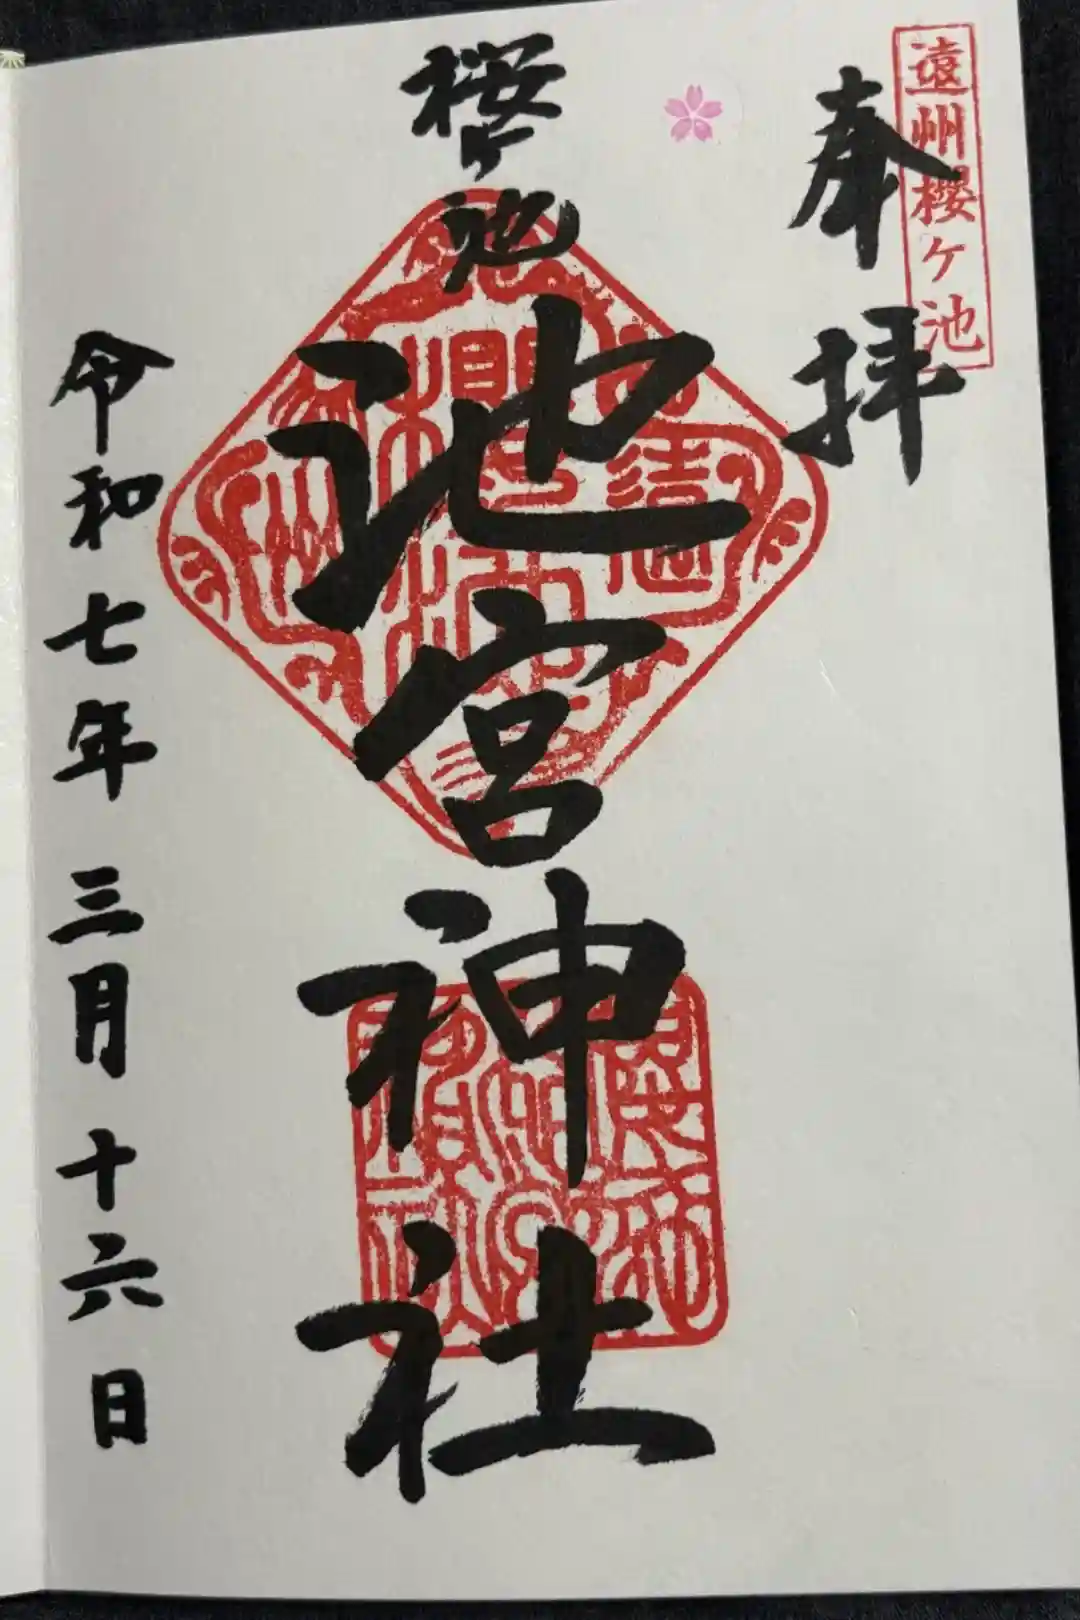 遠州櫻ケ池
奉拝
桜ケ池
池宮神社
令和七年三月十六日